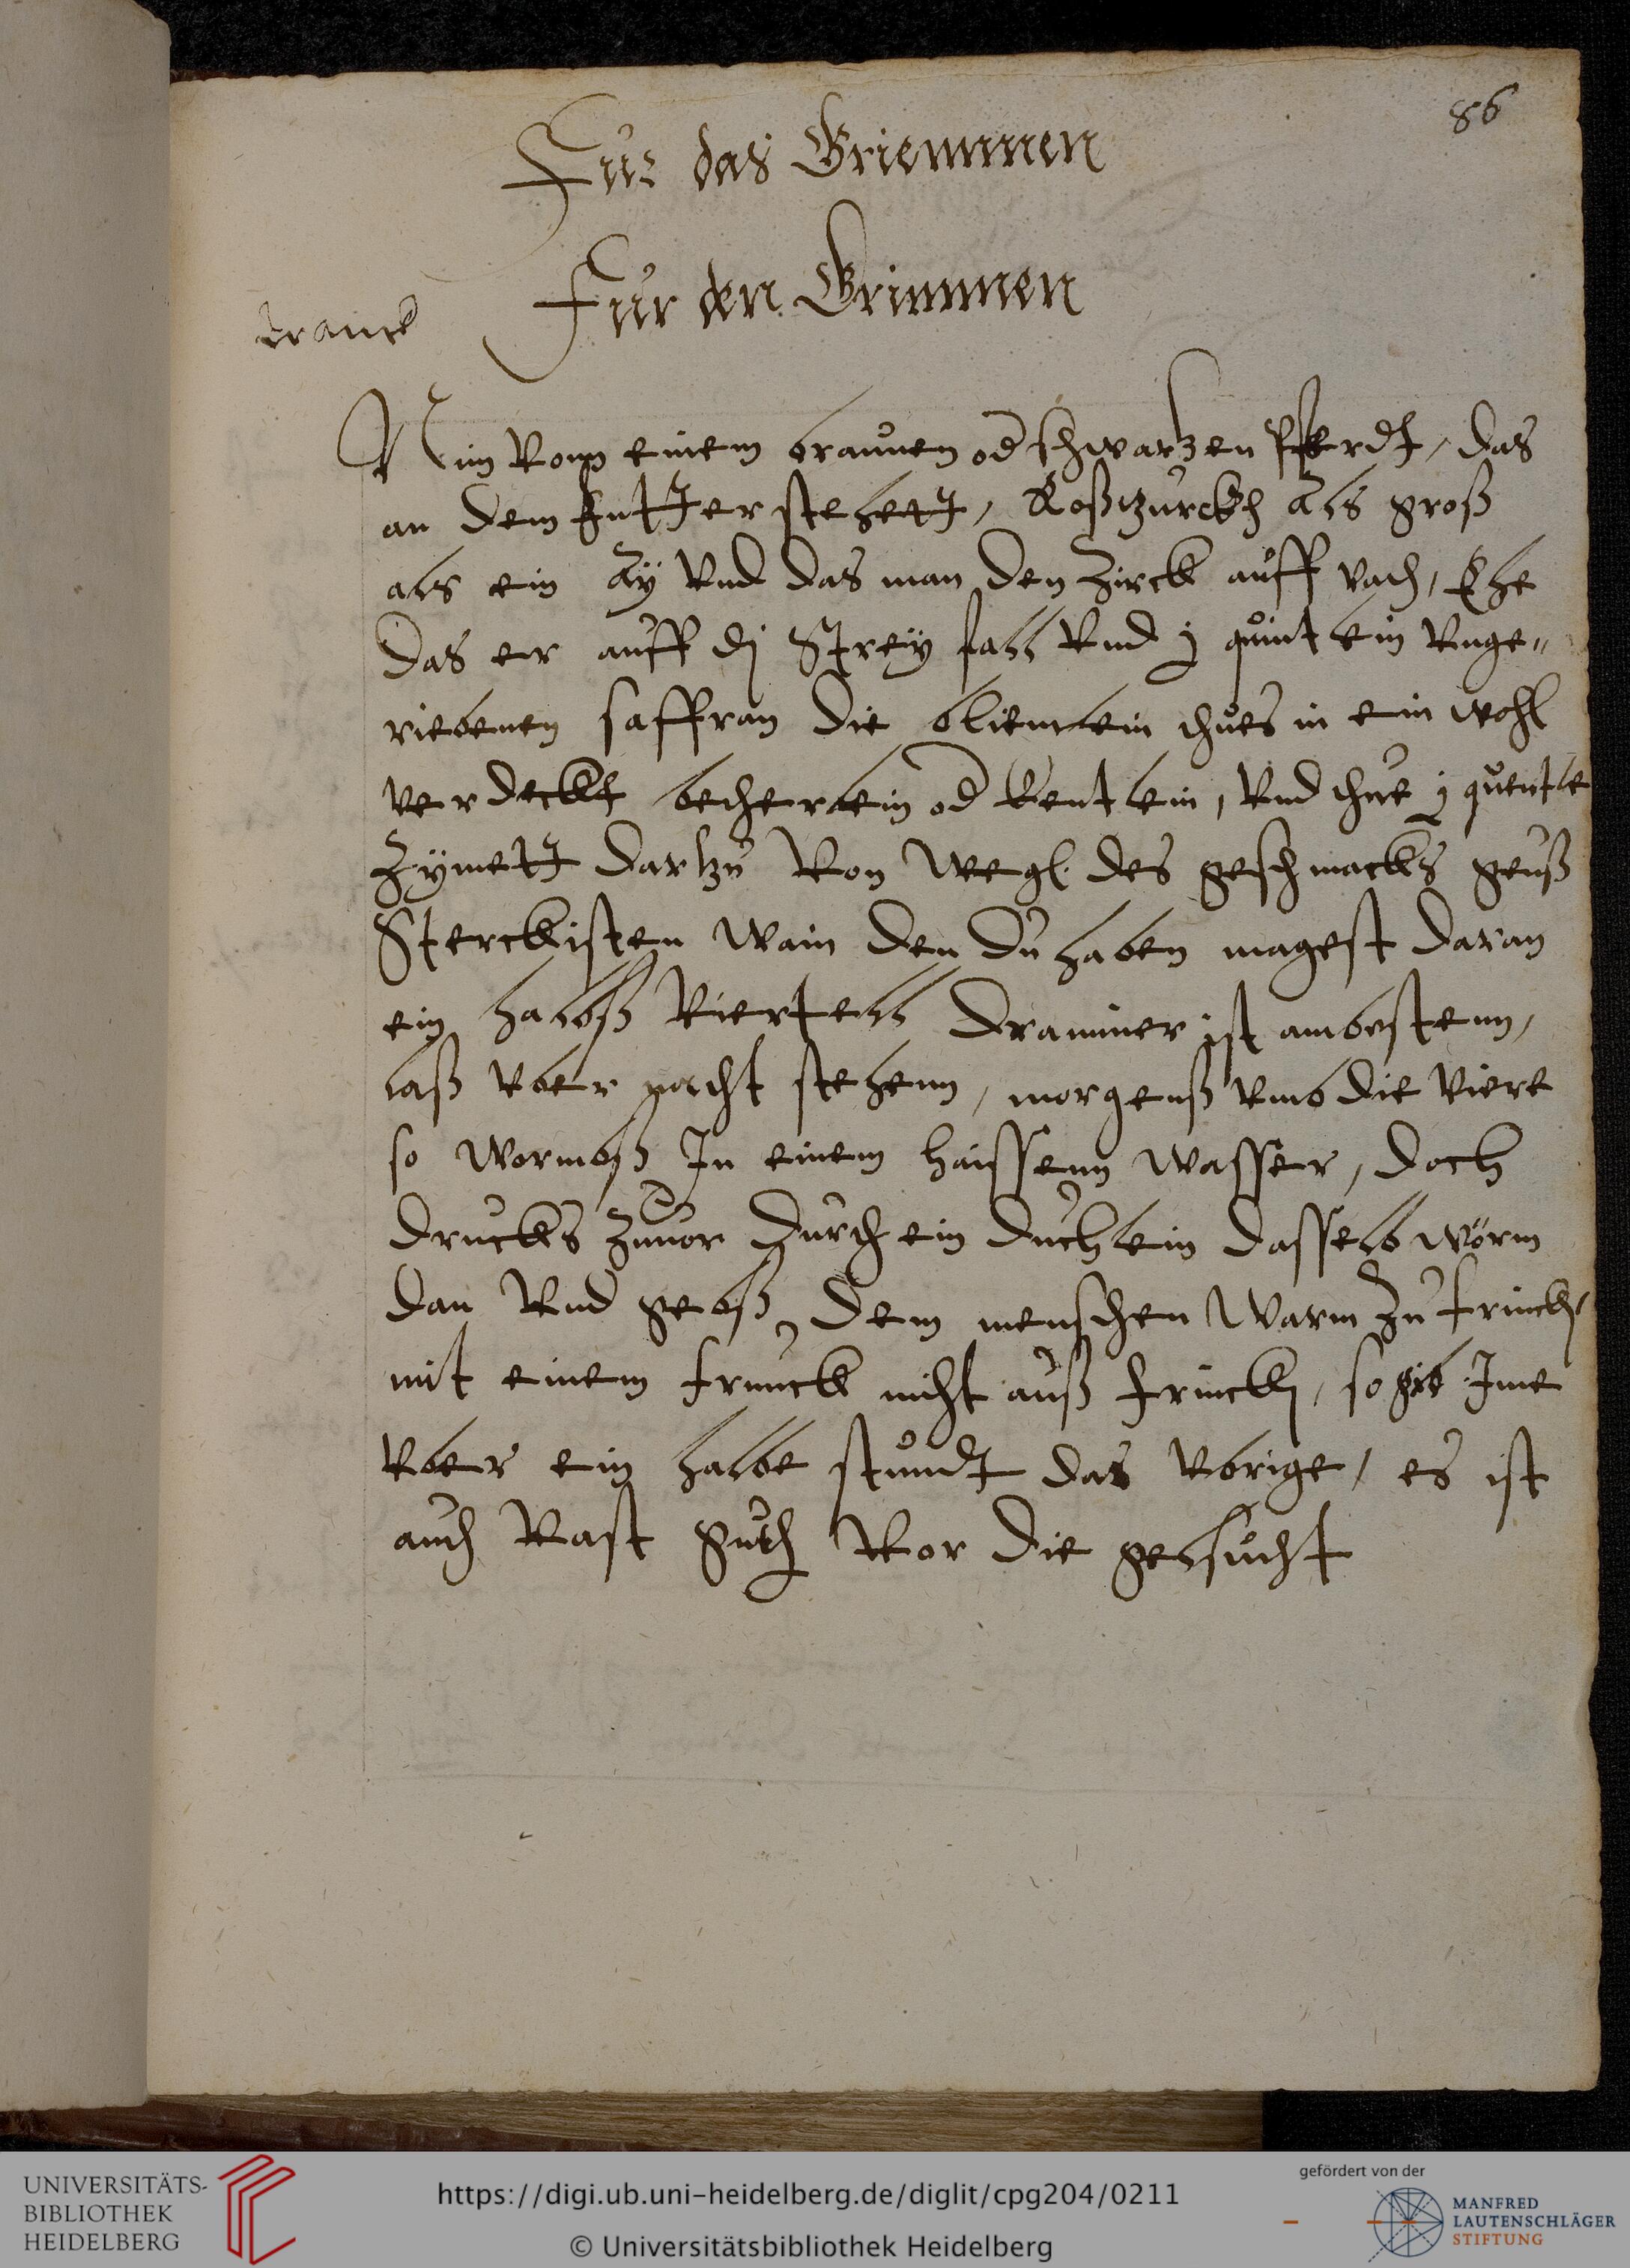 86
Fur das Griemmen
Fur den Grimmen
tranck
Nim vonn einem braunen od schwarzen Pferdt, das
an dem futter stehett, Roßzurckh als groß
als ein Ay vnd das man den Zirck auff vach, Ehe
das er auff di Strey fall vnd j quintlein vnge-
riebenen saffran die bliemlein thues in ein wohl
verdeckt becherlein od kentlein, vnd thue j quentle
Zymett dartzu von weg des geschmacks geuß
Sterckisten wain den du haben magest daran
ein halbß viertell draminer ist am bestenn,
laß vber nacht stehenn, morgenß vmb die viere
so wormbß In einem haissenn wasser, doch
druckes zuuor durch ein duchlein dasselb wörm
dan vnd gebß dem menschen warm zu trincken
mit einem trunck nicht auß trincken, so gib Ime
vber ein halbe stundt das vbrige, es ist
auch vast guth vor die gelsucht
UNIVERSITÄTS-
BIBLIOTHEK
HEIDELBERG
https://digi.ub.uni-heidelberg.de/diglit/cpg204/0211
© Universitätsbibliothek Heidelberg
gefördert von der
MANFRED
LAUTENSCHLÄGER
STIFTUNG